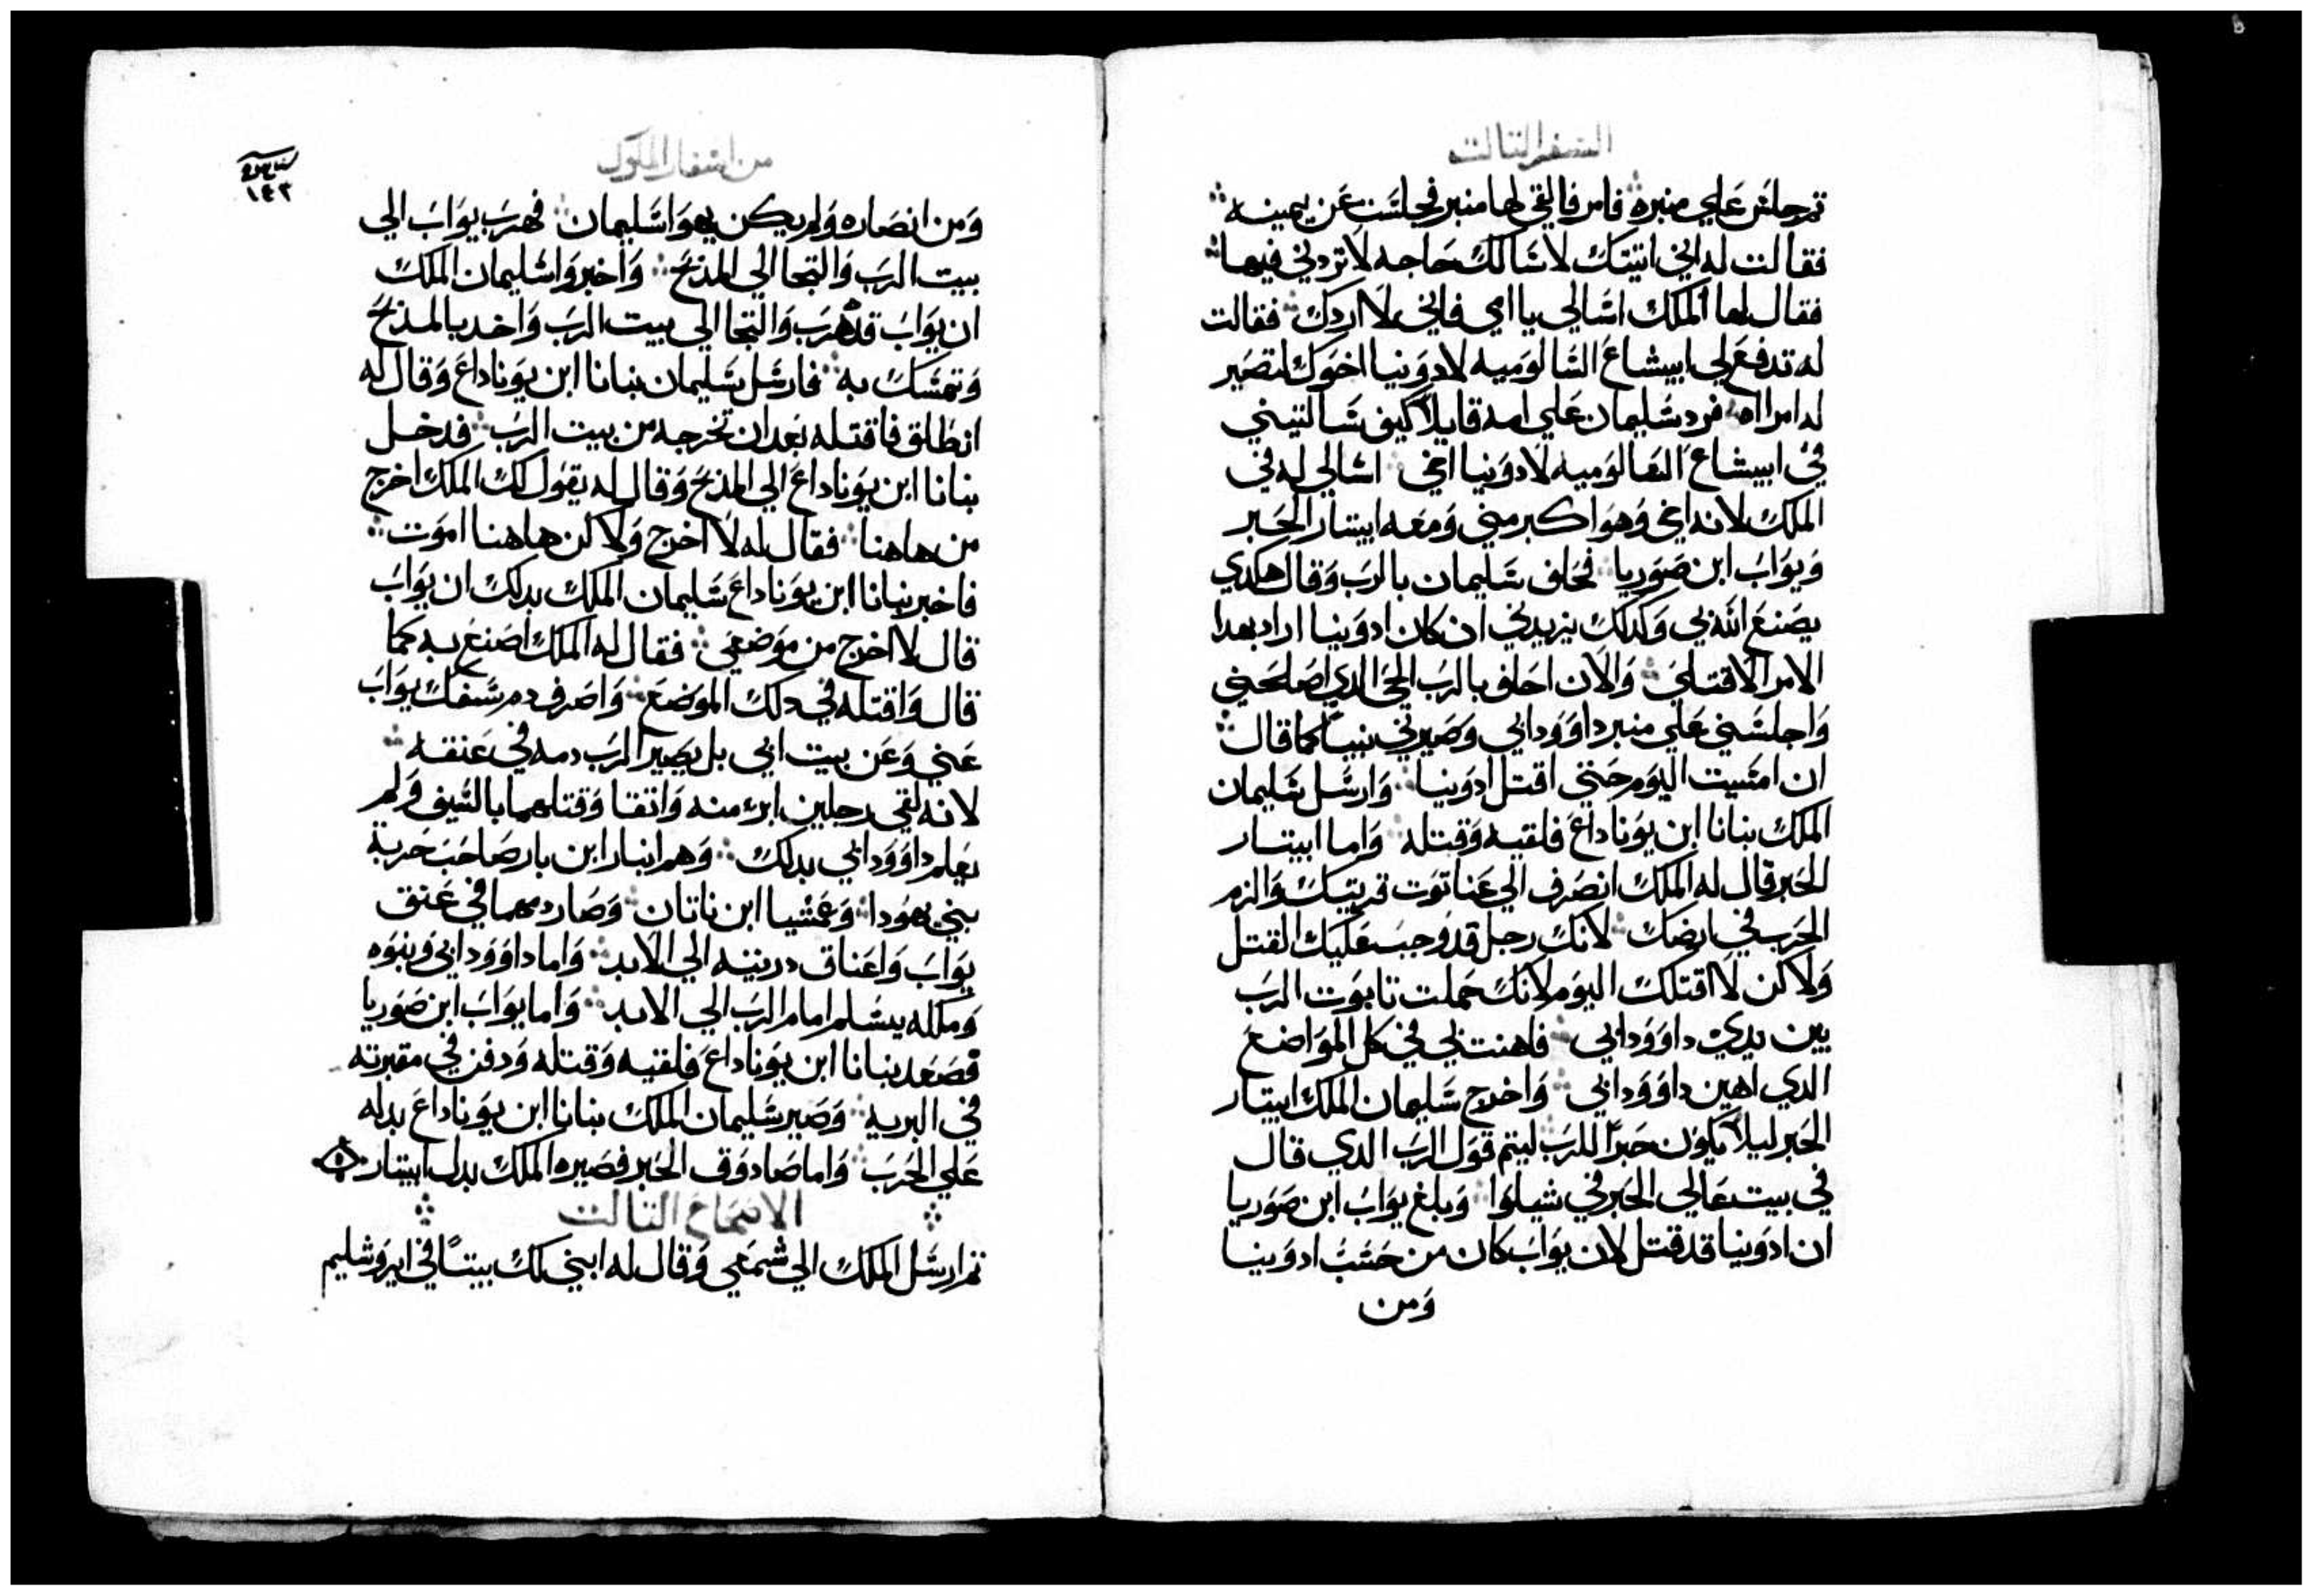 السفر التالت
تم جلس علي منبره فامر فالقي لها منبر فجلست عن يمينه
فقالت له اني اتيتك لاسالك حاجه لا تردني فيها
فقال لها الملك اسالي يا امي فاني لا اردك فقالت
له تدفع لي ابيشاع الشالوميه لادونيا اخوك لتصير
له امراه فرد سليمان علي امه قايلا كيف سالتيني
في ابيشاع الشالوميه لادونيا اخي اسالي له في
الملك لانه اخي وهو اكبر مني ومعه ابيتار الحبر
ويواب ابن صوريا فحلف سليمان بالرب وقال هكدي
يصنع الله بي وكدلك يزيدني ان كان ادونيا اراد بهدا
الامر الا قتلي والان احلف بالرب الحي الدي اصلحني
واجلسني علي منبر داوود ابي وصيرني نبيا كما قال
ان امسيت اليوم حتي اقتل ادونيا وارسل سليمان
الملك بنانا ابن يوناداع فلقيه وقتله واما ابيتار
الحبر قال له الملك انصرف الي عناتوت قريتك والزم
الحرب في ارضك لانك رجل قد وجب عليك القتل
ولاكن لا اقتلك اليوم لانك حملت تابوت الرب
بين يدي داوود ابي فاهنت بي في كل المواضع
الدي اهين داوود ابي واخرج سليمان الملك ابيتار
الحبر ليلا يكون حبرا للرب ليتم قول الرب الدي قال
في بيت عالي الحبر في شيلوا وبلغ يواب ابن صوريا
ان ادونيا قد قتل لان يواب كان من حسب ادونيا
ومن
من اسفار الملوك
١٤٣
ومن انصاره ولم يكن يهوا سليمان فهرب يواب الي
بيت الرب والتجا الي المذبح واخبروا سليمان الملك
ان يواب قد هرب والتجا الي بيت الرب واخد بالمذبح
وتمسك به فارسل سليمان بنانا ابن يوناداع وقال له
انطلق فاقتله بعد ان تخرجه من بيت الرب فدخل
بنانا ابن يوناداع الي المذبح وقال له يقول لك الملك اخرج
من هاهنا فقال له لا اخرج ولاكن هاهنا اموت
فاخبر بنانا ابن يوناداع سليمان الملك بدلك ان يواب
قال لا اخرج من موضعي فقال له الملك اصنع به كما
قال واقتله في دلك الموضع واصرف دم سفك يواب
عني وعن بيت ابي بل يصير الرب دمه في عنقه
لانه لقي رجلين ابر منه واتقا وقتلهما بالسيف ولم
يعلم داوود ابي بدلك وهم ابنار ابن بار صاحب حربة
بني يهودا وعمشيا ابن ناتان وصار دمهما في عنق
يواب واعناق دريته الي الابد واما داوود ابي وبنوه
وملكه يسلم امام الرب الي الابد واما يواب ابن صوريا
فصعد بنانا ابن يوناداع فلقيه وقتله ودفن في مقبرته
في البريه وصير سليمان الملك بنانا ابن يوناداع بدله
علي الحرب واما صادوق الحبر فصيره الملك بدل ابيتار
الاصحاح التالت
تم ارسل الملك الي شمعي وقال له ابني لك بيتا في ايروشليم